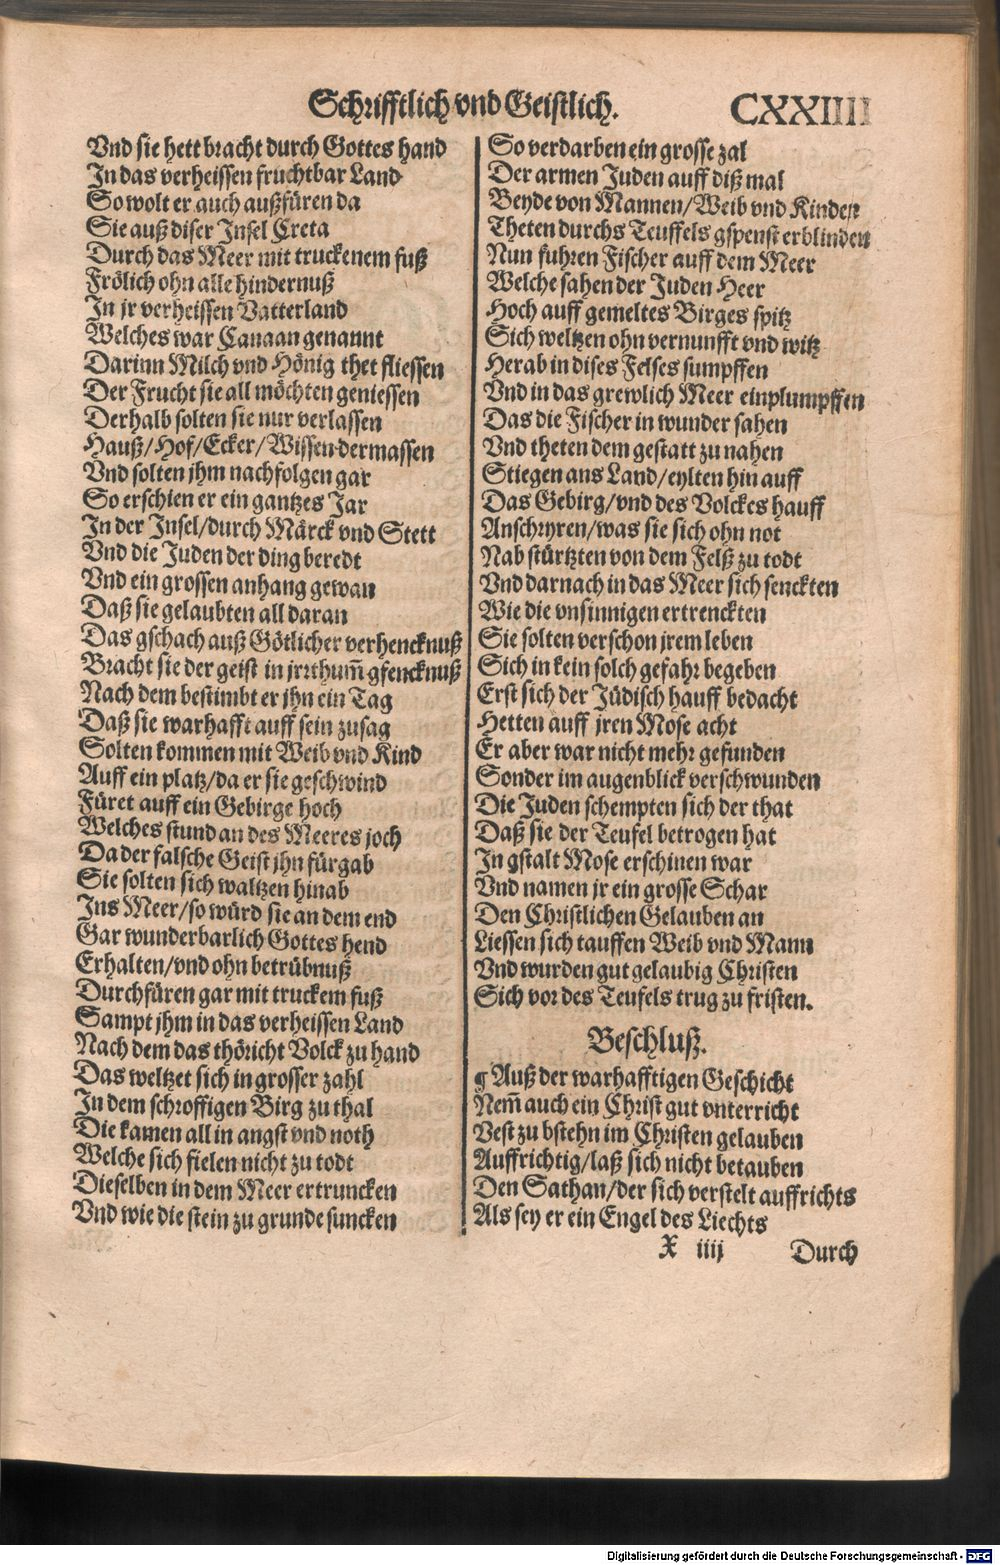 Schrifftlich vnd Geistlich.
CXXIIII
Vnd sie hett bracht durch Gottes hand
In das verheissen fruchtbar Land
So wolt er auch außfüren da
Sie auß diser Insel Creta
Durch das Meer mit truckenem fuß
Frölich ohn alle hindernuß
In jr verheissen Vatterland
Welches war Canaan genannt
Darinn Milch vnd Hönig thet fliessen
Der Frucht sie all möchten geniessen
Derhalb solten sie nur verlassen
Hauß/Hof/Ecker/Wissen dermassen
Vnd solten jhm nachfolgen gar
So erschien er ein gantzes Jar
In der Insel/durch Märck vnd Stett
Vnd die Juden der ding beredt
Vnd ein grossen anhang gewan
Daß sie gelaubten all daran
Das gschach auß Götlicher verhencknuß
Bracht sie der geist in jrrthum̃ gfencknuß
Nach dem bestimbt er jhn ein Tag
Daß sie warhafft auff sein zusag
Solten kommen mit Weib vnd Kind
Auff ein platz/da er sie geschwind
Füret auff ein Gebirge hoch
Welches stund an des Meeres joch
Da der falsche Geist jhn fürgab
Sie solten sich waltzen hinab
Ins Meer/so würd sie an dem end
Gar wunderbarlich Gottes hend
Erhalten/vnd ohn betrübnuß
Durchfüren gar mit truckem fuß
Sampt jhm in das verheissen Land
Nach dem das thöricht Volck zu hand
Das weltzet sich in grosser zahl
In dem schroffigen Birg zu thal
Die kamen all in angst vnd noth
Welche sich fielen nicht zu todt
Dieselben in dem Meer ertruncken
Vnd wie die stein zu grunde suncken
So verdarben ein grosse zal
Der armen Juden auff diß mal
Beyde von Mannen/Weib vnd Kinder
Theten durchs Teuffels gspenst erblinden
Nun fuhren Fischer auff dem Meer
Welche sahen der Juden Heer
Hoch auff gemeltes Birges spitz
Sich weltzen ohn vernunfft vnd witz
Herab in dises Felses sumpffen
Vnd in das grewlich Meer einplumpffen
Das die Fischer in wunder sahen
Vnd theten dem gestatt zu nahen
Stiegen ans Land/eylten hin auff
Das Gebirg/vnd des Volckes hauff
Anschryren/was sie sich ohn not
Nab stürtzten von dem Felß zu todt
Vnd darnach in das Meer sich senckten
Wie die vnsinnigen ertrenckten
Sie solten verschon jrem leben
Sich in kein solch gefahr begeben
Erst sich der Jüdisch hauff bedacht
Hetten auff jren Mose acht
Er aber war nicht mehr gefunden
Sonder im augenblick verschwunden
Die Juden schempten sich der that
Daß sie der Teufel betrogen hat
In gstalt Mose erschinen war
Vnd namen jr ein grosse Schar
Den Christlichen Gelauben an
Liessen sich tauffen Weib vnd Mann
Vnd wurden gut gelaubig Christen
Sich vor des Teufels trug zu fristen.
Beschluß.
¶ Auß der warhafftigen Geschicht
Nem̃ auch ein Christ gut vnterricht
Vest zu bstehn im Christen gelauben
Auffrichtig/laß sich nicht betauben
Den Sathan/der sich verstelt auffrichts
Als sey er ein Engel des Liechts
X iiij
Durch
Digitalisierung gefördert durch die Deutsche Forschungsgemeinschaft - DFG